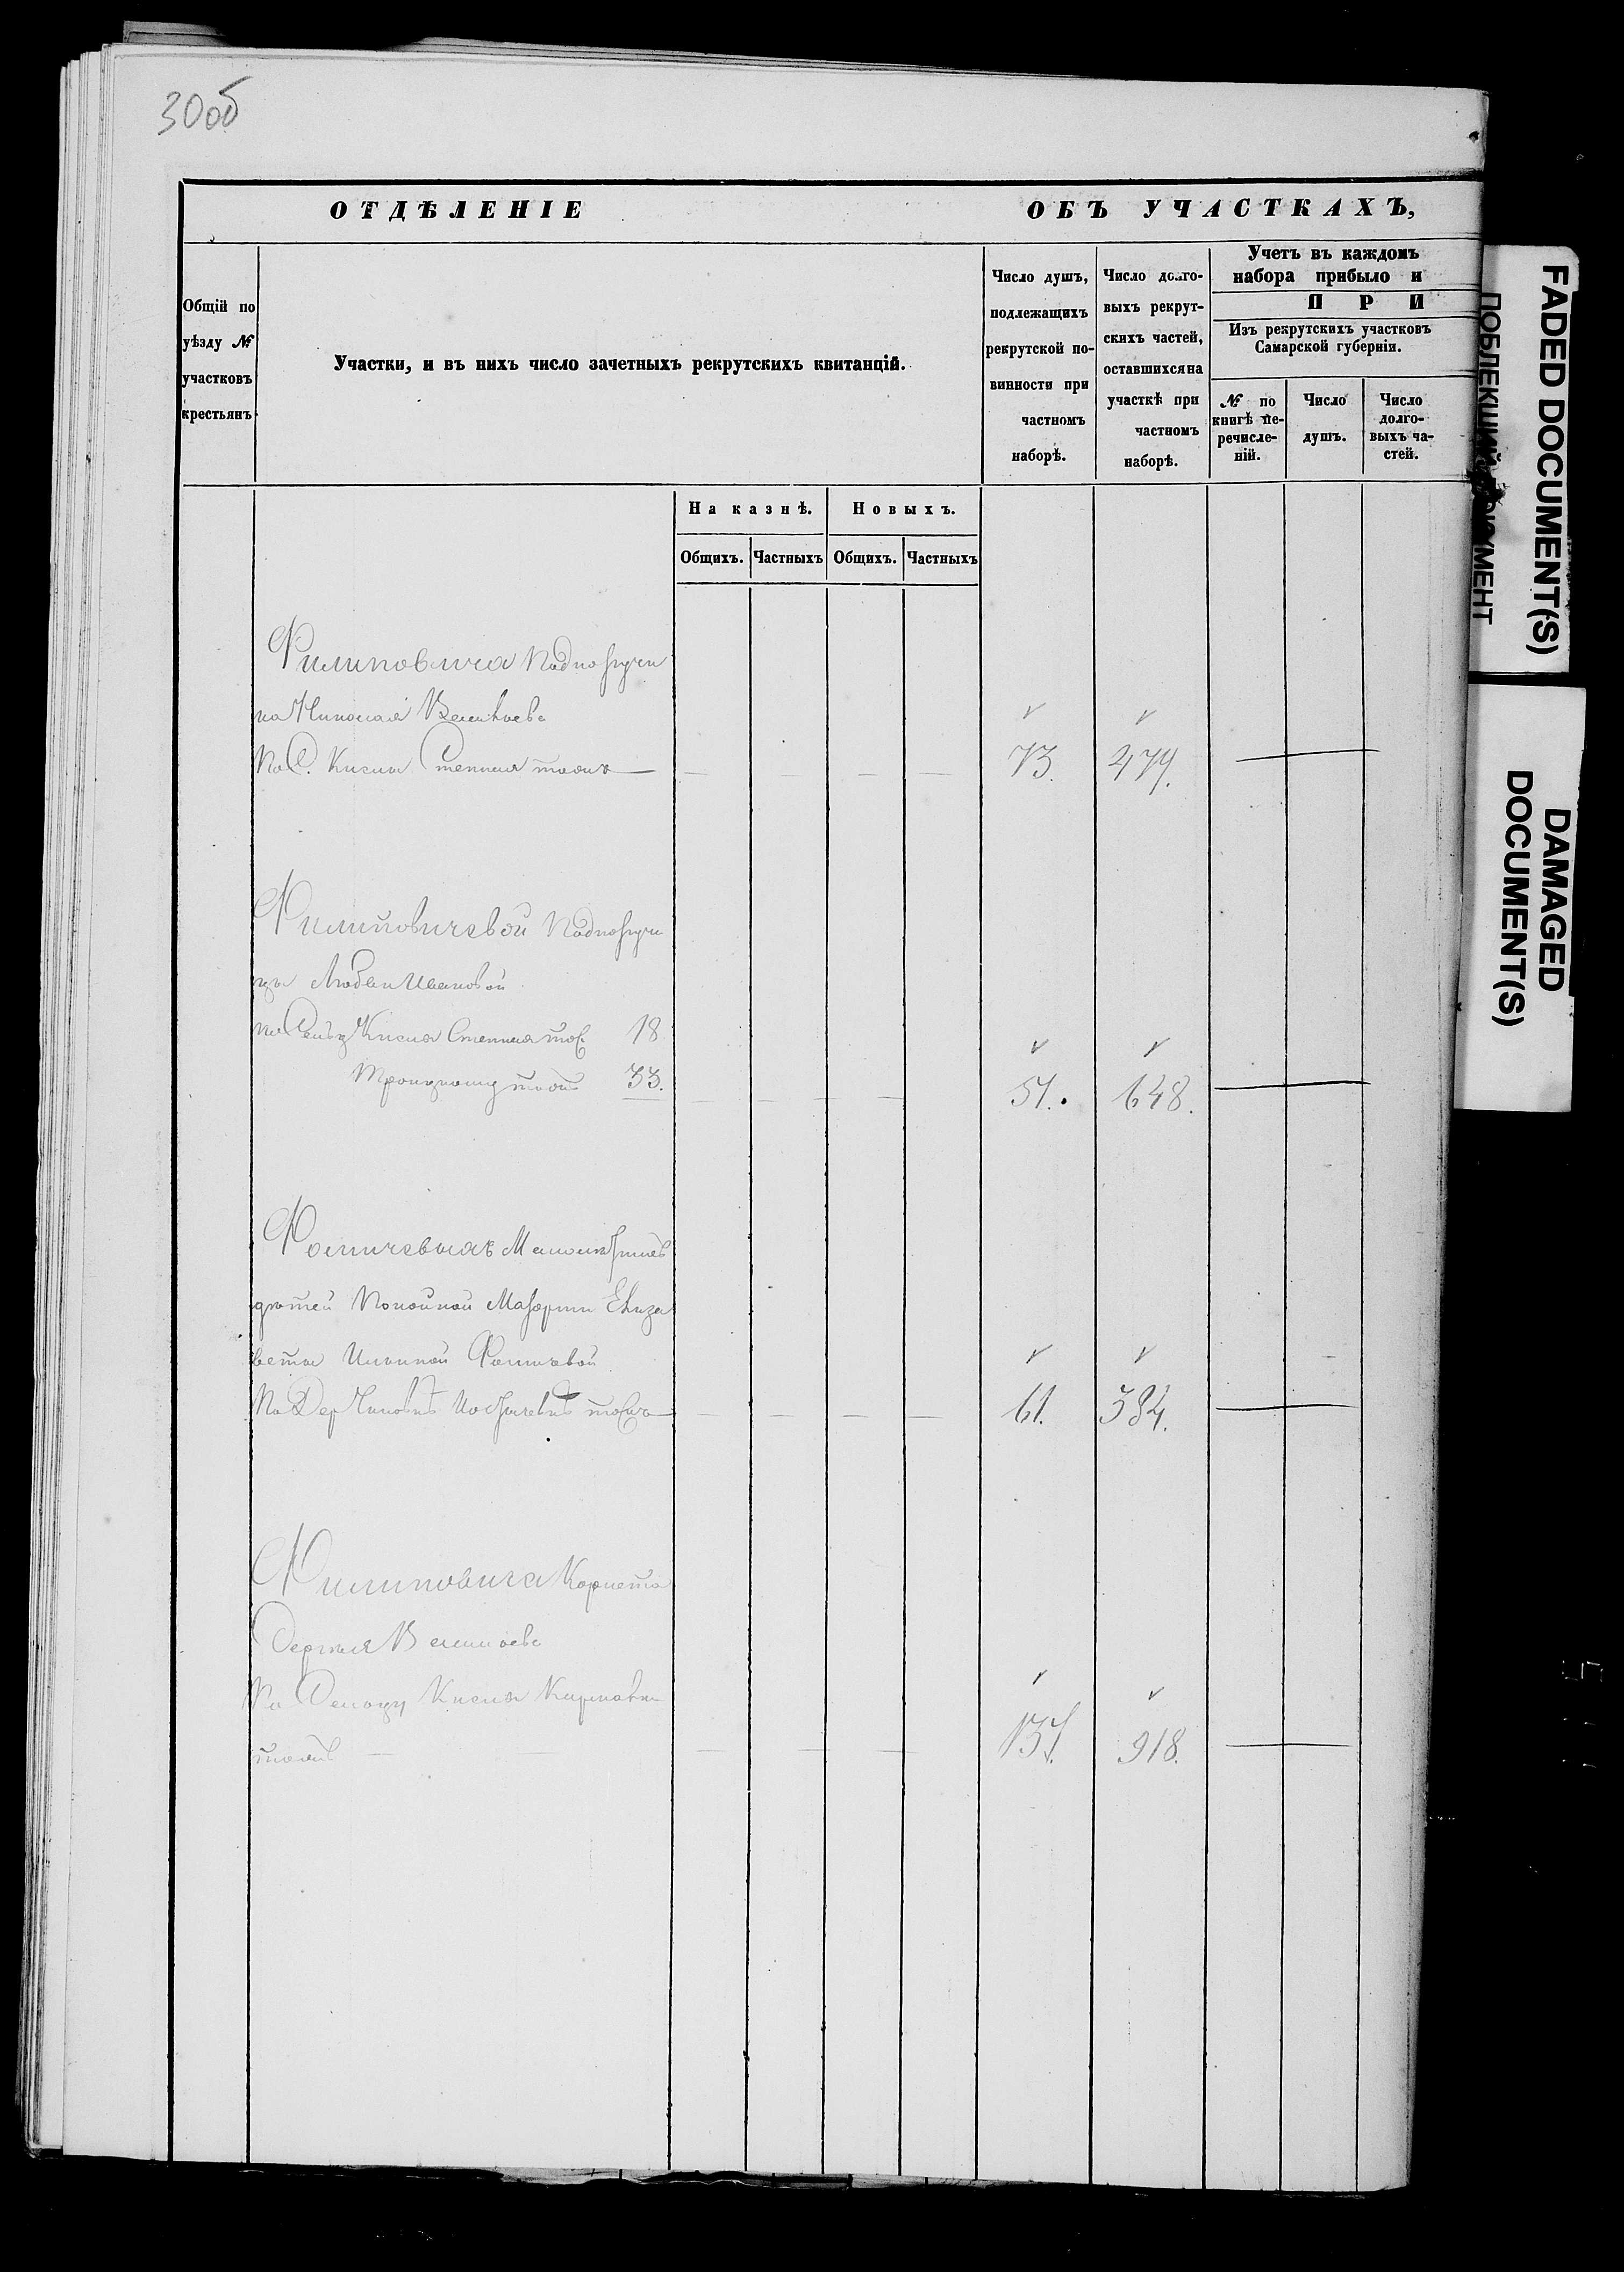 30об
ОТДѢЛЕНІЕ ОБЪ УЧАСТКАХЪ,
Общій по уѣзду № участковъ крестьянъ
Участки, и въ нихъ число зачетныхъ рекрутскихъ квитанцій.
Число душъ, подлежащихъ рекрутской повинности при частномъ наборѣ.
Число долговыхъ рекрутскихъ частей, оставшихся на участкѣ при частномъ наборѣ.
Учетъ въ каждомъ
набора прибыло и
ПРИ
Изъ рекрутскихъ участковъ
Самарской губерніи.
№ по книгѣ перечисленій.
Число душъ.
Число долговыхъ частей.
На казнѣ. Новыхъ.
Общихъ. Частныхъ Общихъ. Частныхъ
Филиповича Подпоручи
ка Николая
По С. Кисла Степная тожъ 73. 479.
Филиповичевой Подпоручи
цы Любви Ивановой
по Сельцу Кисла Степная тож 18
Троицкому тожъ 33. 51. 648.
Фомичевыхъ Малолѣтныхъ
дѣтей Покойной Маіорши Елиза
веты Фомичевой
По Дер тожъ 61. 384.
Филиповича Корнета
Сергея
По Сельцу Кисла
тожъ 137. 918.
FADED DOCUMENT(S)
ПОБЛЕКШИЙ ДОКУМЕНТ
DAMAGED
DOCUMENT(S)